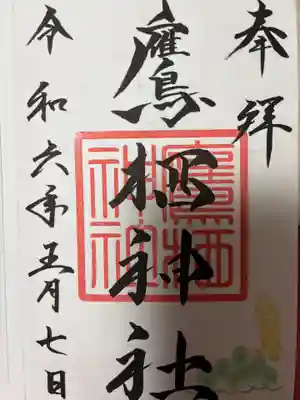 奉拝
鷹栖神社
鷹栖神社
令和六年五月七日